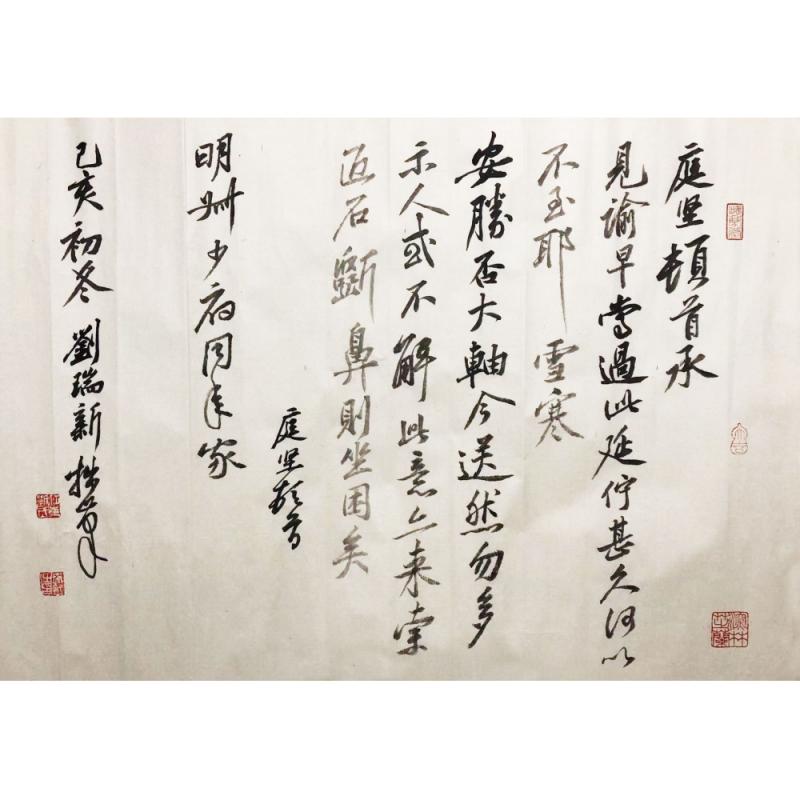 庭坚頓首承
見諭早嘗過此延佇甚久何以
不至耶雪寒
安勝否大軸今送然勿多
示人或不解此意亦来索
匠石斵鼻則坐困矣
庭坚頓首
明州少府同年家
己亥初冬劉瑞新拙筆